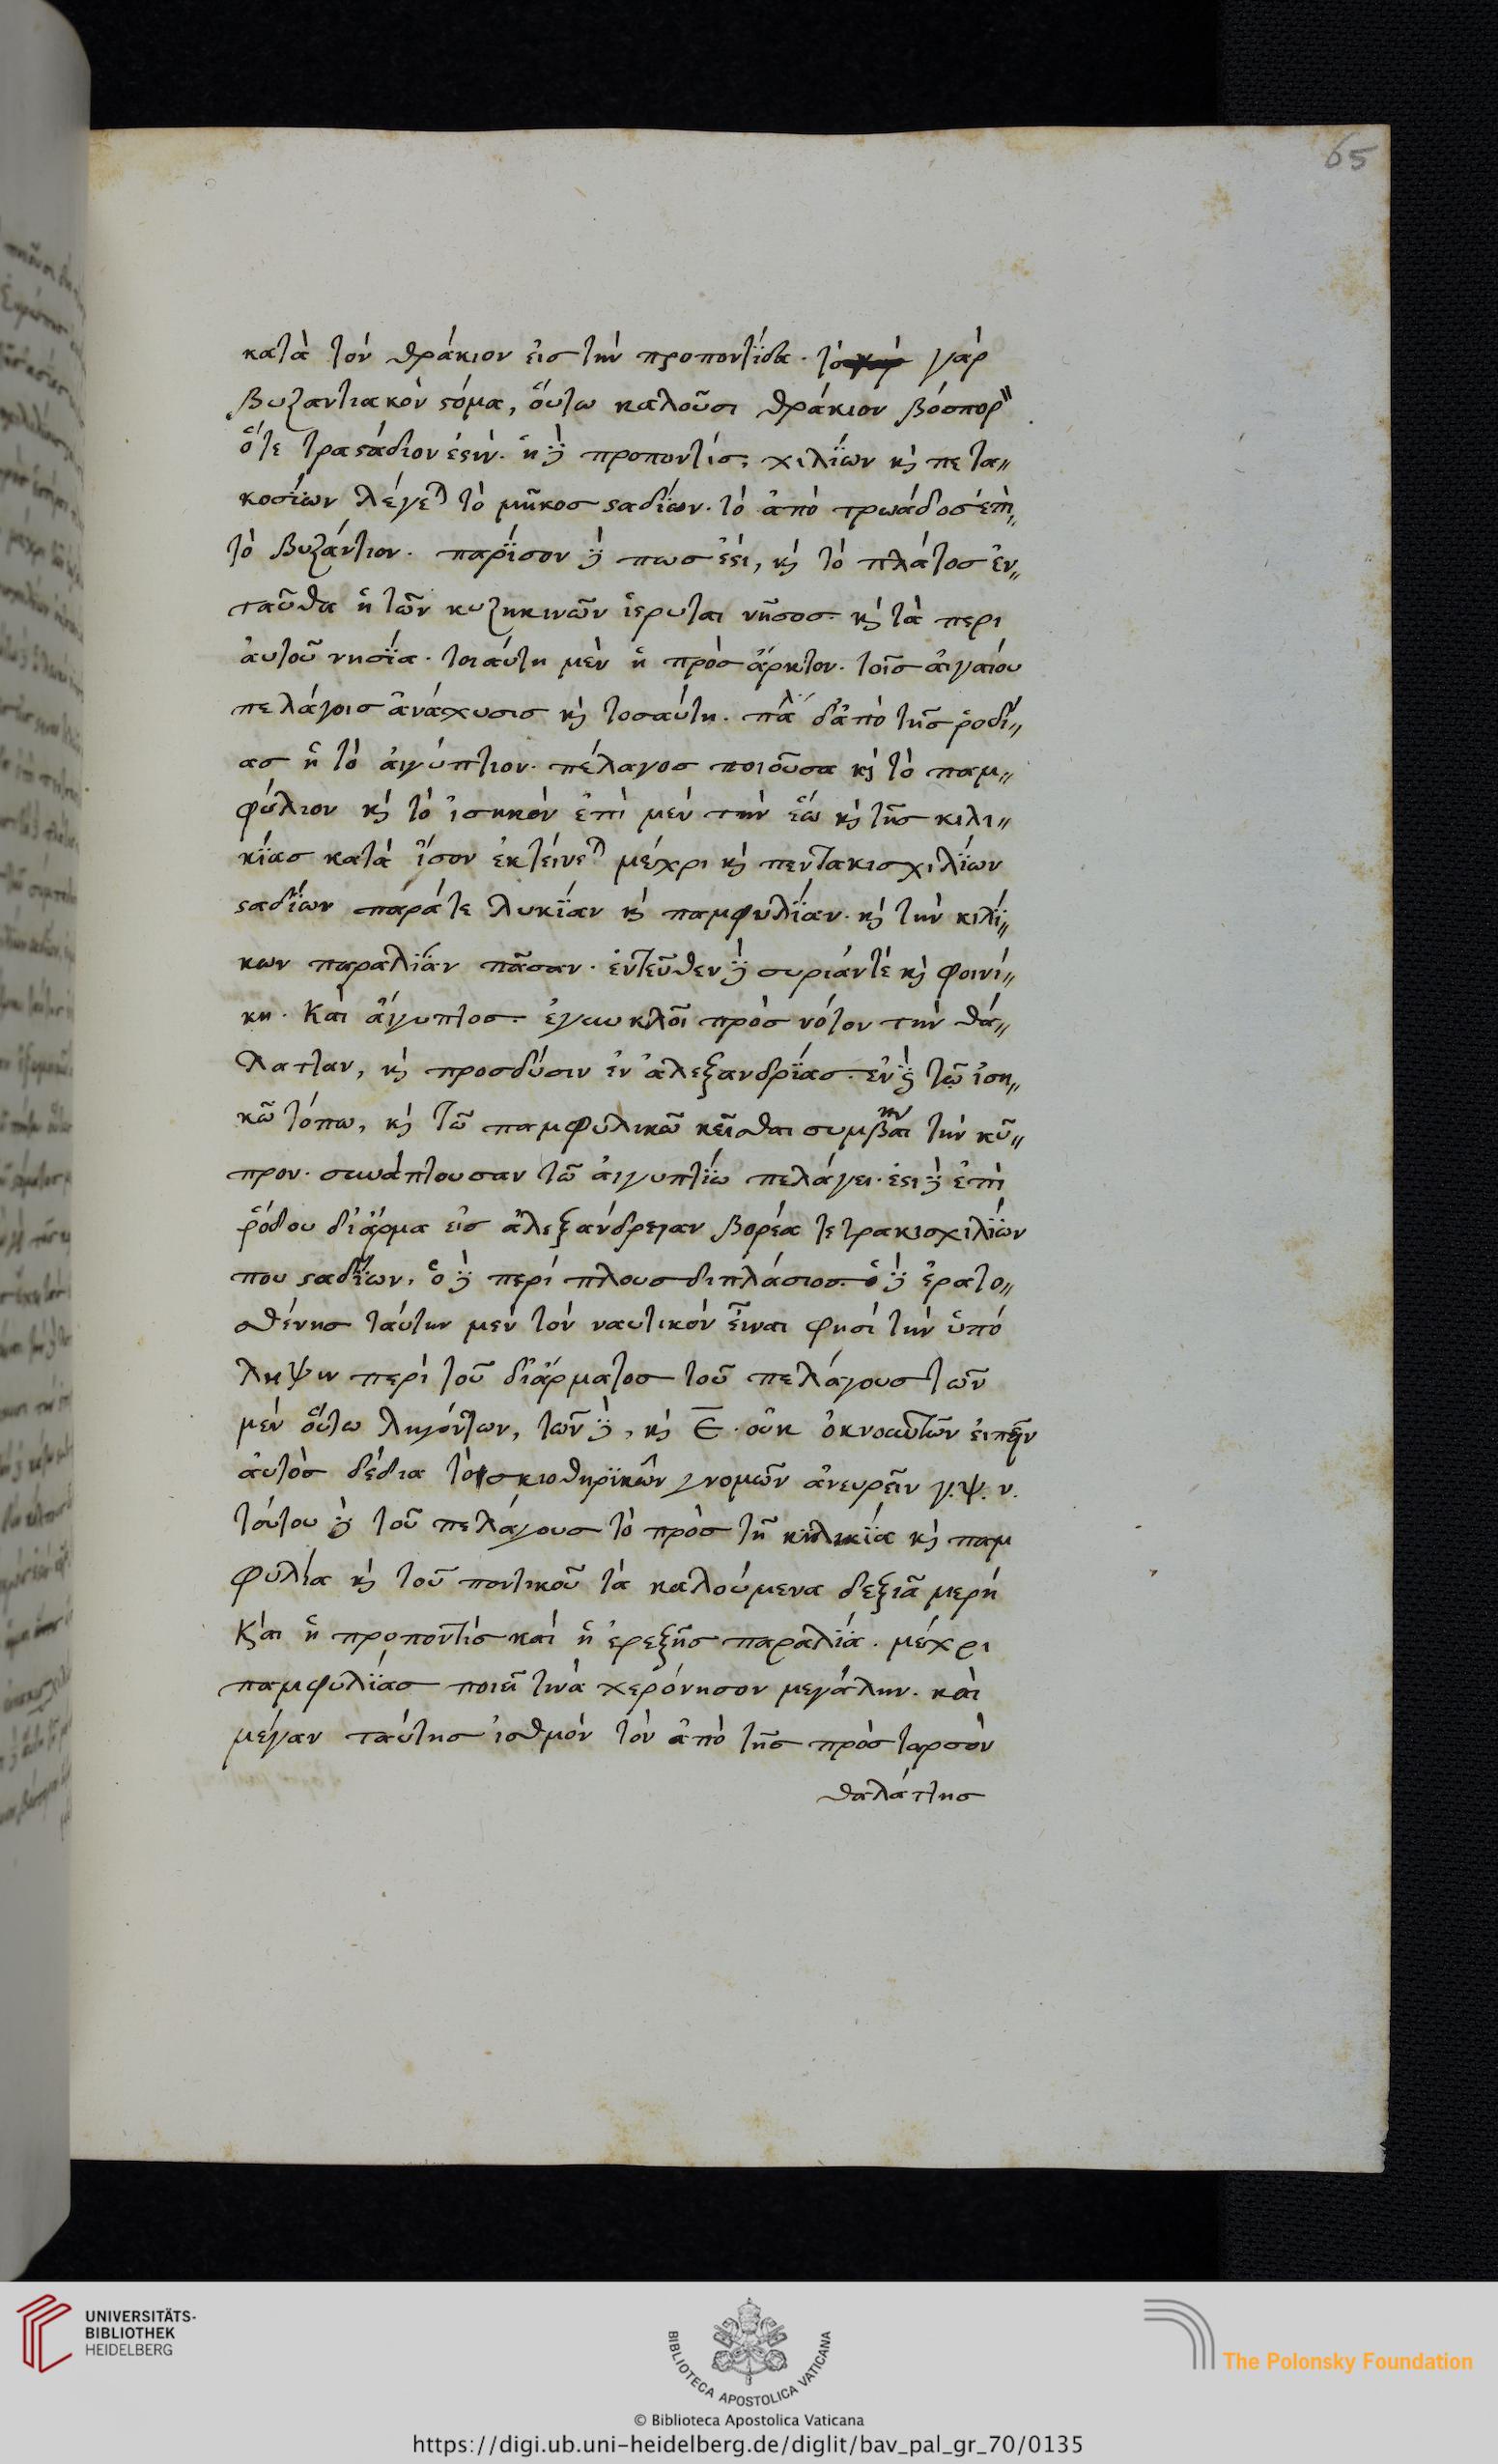 65
κατὰ τὸν θράκιον εἰς τὴν προποντΐδα. τὸ γὰρ
βυζαντιακὸν ϛόμα, ὅυτω καλοῦσι θράκιον βόσπορ
ὅ τε τραϛάδιον ἐϛιν. ἡ δὲ προποντὶς, χιλΐων κὶ πετα〃
κοσΐων λέγε τὸ μῆκος ϛαδΐων. τὸ ἀπὸ τρωάδος ἐπὶ〃
τὸ βυζάντιον. παρΐσον δὲ πως ἐϛι, κὶ τὸ πλάτος ἐν〃
ταῦθα ἡ τῶν κυζηκινῶν ἵερυται νῆσος. κὶ τὰ περι
ἀυτοῦ νησΐα. τοιάυτη μὲν ἡ πρὸς ἄρκτον. τοῖς ἀιγαίου
πελάγοις ἀνάχυσις κὶ τοσάυτη. πλ δ' ἀπὸ τῆς ῥοδΐ〃
ας ἡ τὸ ἀιγύπτιον. πέλαγος ποιοῦσα κὶ τὸ παμ〃
φύλιον κὶ τὸ ἰσηκὸν ἐπὶ μὲν τὴν ἕω κὶ τῆς κιλι〃
κΐας κατὰ ἴσον ἐκτείνε μέχρι κὶ πεντακισχιλΐων
ϛαδΐων πάρά τε λυκΐαν κὶ παμφυλΐαν. κὶ τὴν κιλΐ〃
κων παραλΐαν πᾶσαν. ἐντεῦθεν δὲ συριάν τὲ κὶ φοινί〃
κη. Καὶ ἄιγυπτος. ἐγκυκλοῖ πρὸς νότον τὴν θά〃
λατταν, κὶ προσδύσιν ἐν ἀλεξανδρΐας. ἐν δὲ τῷ ἰση〃
κῶ τόπω, κὶ τῶ παμφυλικῶ κεῖσθαι συμβαι τὴν κύ〃
προν. συνάπτουσαν τῶ ἀιγυπτΐω πελάγει. ἐϛι δὲ ἐπὶ
ῥόδου δίαρμα εἰς ἀλεξάνδρειαν βορέα τετρακισχιλΐων
που ϛαδΐων, ὁ δὲ περί πλους διπλάσιος. ὁ δὲ ἐρατο〃
σθένης τάυτην μεν τὸν ναυτικὸν εἶναι φησὶ τὴν ὑπό
ληψιν περὶ τοῦ διάρματος τοῦ πελάγους τῶν
μὲν ὅυτω ληγόντων, τῶν δὲ, κὶ Ε. οὐκ ὀκνοαυτῶν ἐιπεῖν
ἀυτὸς δέδια τὸ σκιοθηρϊκῶν γνομῶν ἀνευρεῖν γ.ψ.ν.
τόυτου δὲ τοῦ πελάγους τὸ πρὸς τῆ κϊλικΐα κὶ παμ
φυλία κὶ τοῦ ποντικοῦ τὰ καλούμενα δεξιᾶ μερή
Κὶαι ἡ προποντὶς καί ἡ ἐρεξῆς παραλΐα. μέχρι
παμφυλΐας ποιεῖ τινὰ χερόνησον μεγάλην. καὶ
μέγαν ταύτης ἰσθμὸν τὸν ἀπὸ τῆς πρὸς ταρσὸν
θαλάττης
UNIVERSITÄTS-
BIBLIOTHEK
HEIDELBERG
BIBLIOTECA APOSTOLICA VATICANA
The Polonsky Foundation
© Biblioteca Apostolica Vaticana
https://digi.ub.uni-heidelberg.de/diglit/bav_pal_gr_70/0135